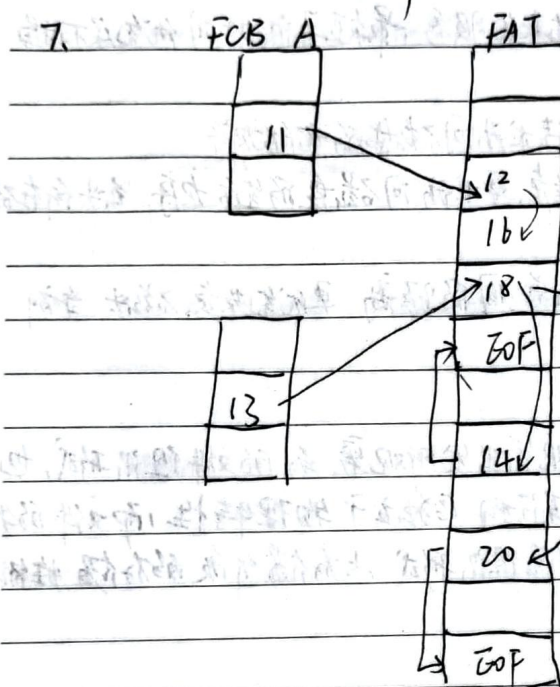 7. FCB A FAT
11
12
16
18
EOF
13
14
20
EOF